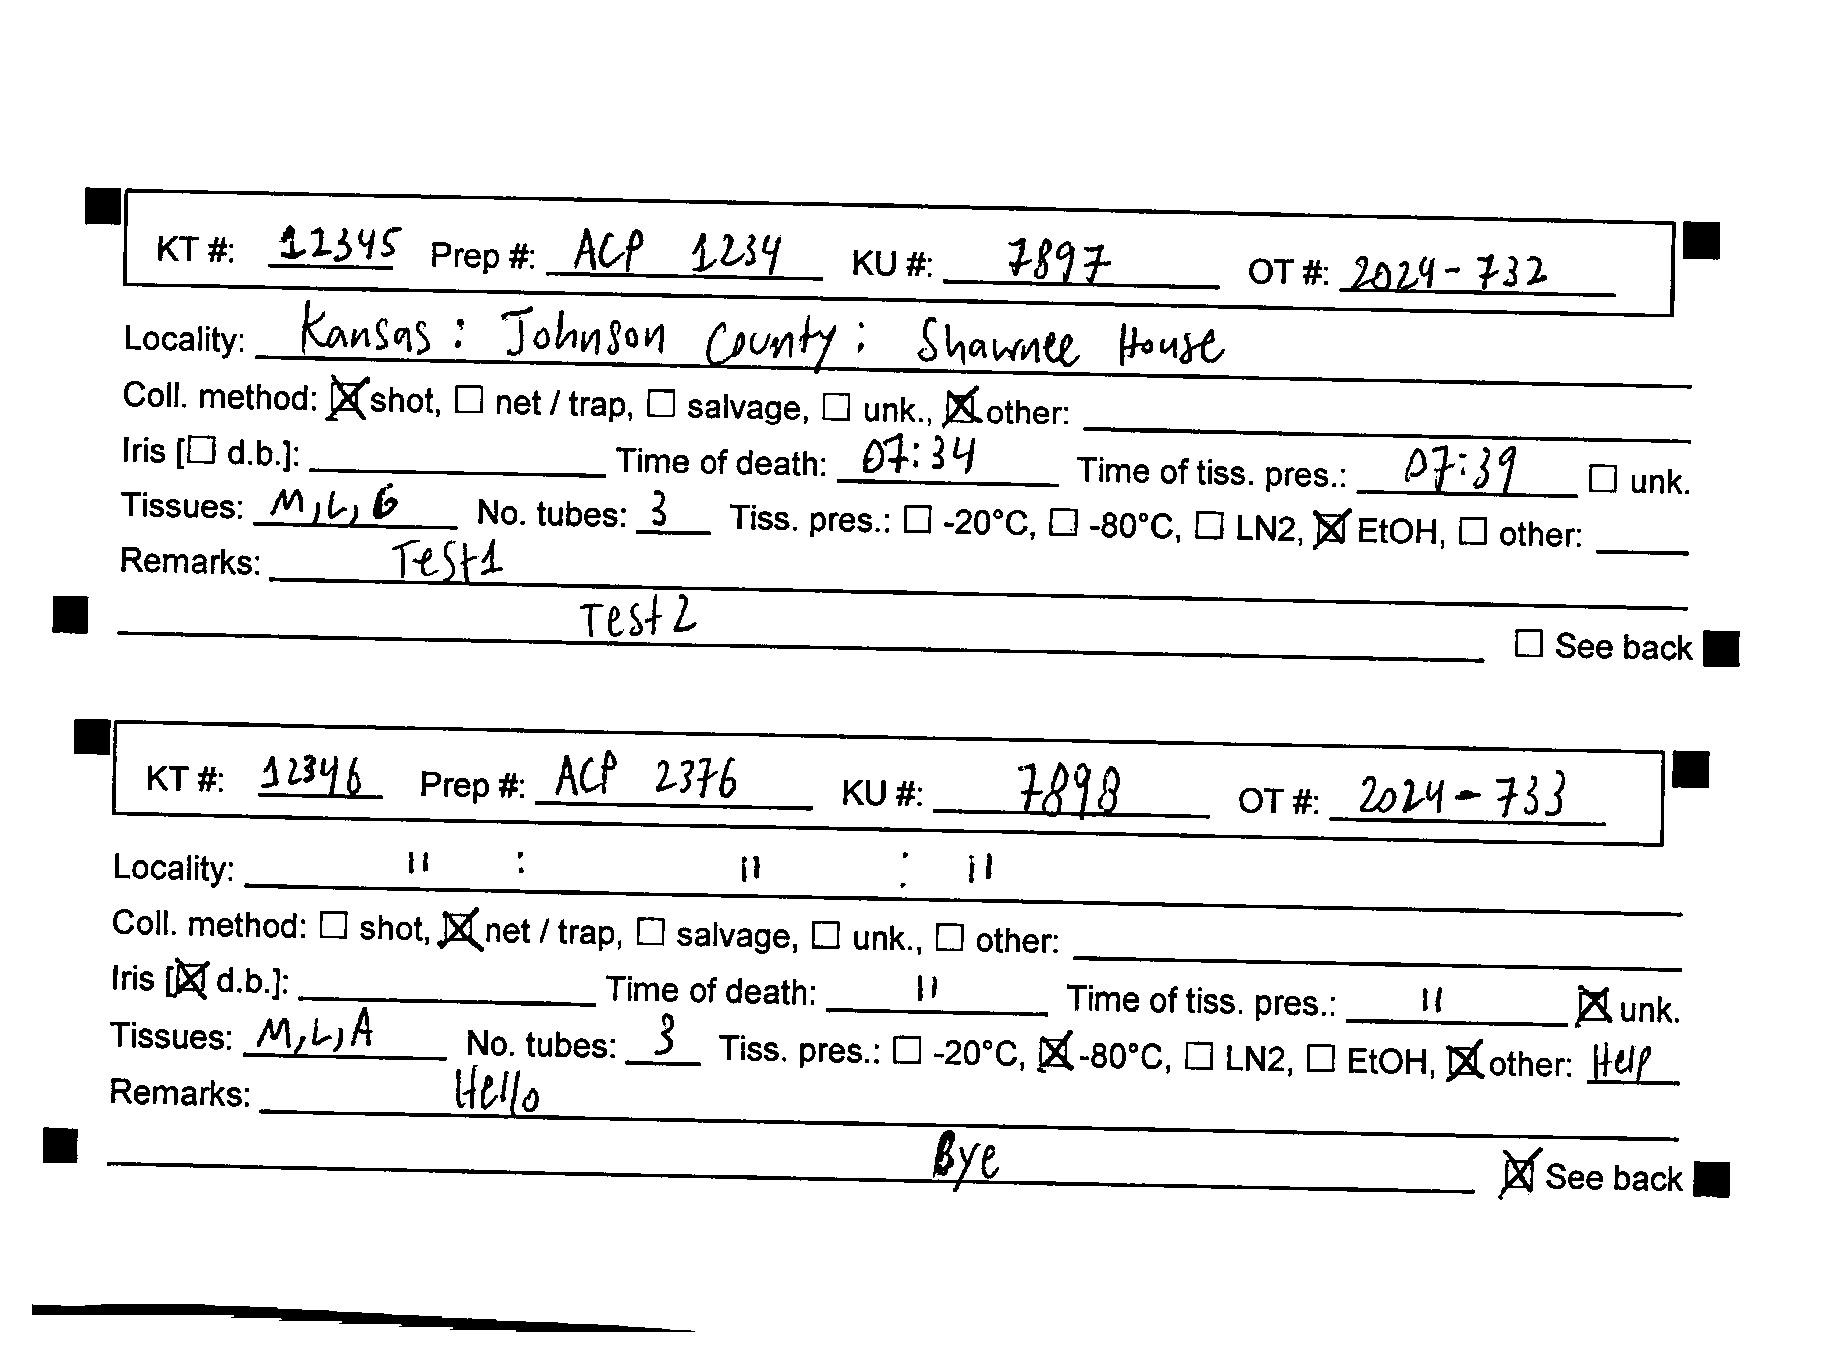 KT #: 12345 Prep #: ACP 1234 KU #: 7897 OT #: 2024-732
Locality: Kansas: Johnson County: Shawnee House
Coll. method: ☒ shot, ☐ net / trap, ☐ salvage, ☐ unk., ☒ other:
Iris [☐ d.b.]: Time of death: 07:34 Time of tiss. pres.: 07:39 ☐ unk.
Tissues: M, L, G No. tubes: 3 Tiss. pres.: ☐ -20°C, ☐ -80°C, ☐ LN2, ☒ EtOH, ☐ other:
Remarks: Test1
Test2
☐ See back
KT #: 12346 Prep #: ACP 2376 KU #: 7898 OT #: 2024-733
Locality: " : " : "
Coll. method: ☐ shot, ☒ net / trap, ☐ salvage, ☐ unk., ☐ other:
Iris [☒ d.b.]: Time of death: " Time of tiss. pres.: " ☒ unk.
Tissues: M, L, A No. tubes: 3 Tiss. pres.: ☐ -20°C, ☒ -80°C, ☐ LN2, ☐ EtOH, ☒ other: Help
Remarks: Hello
Bye
☒ See back